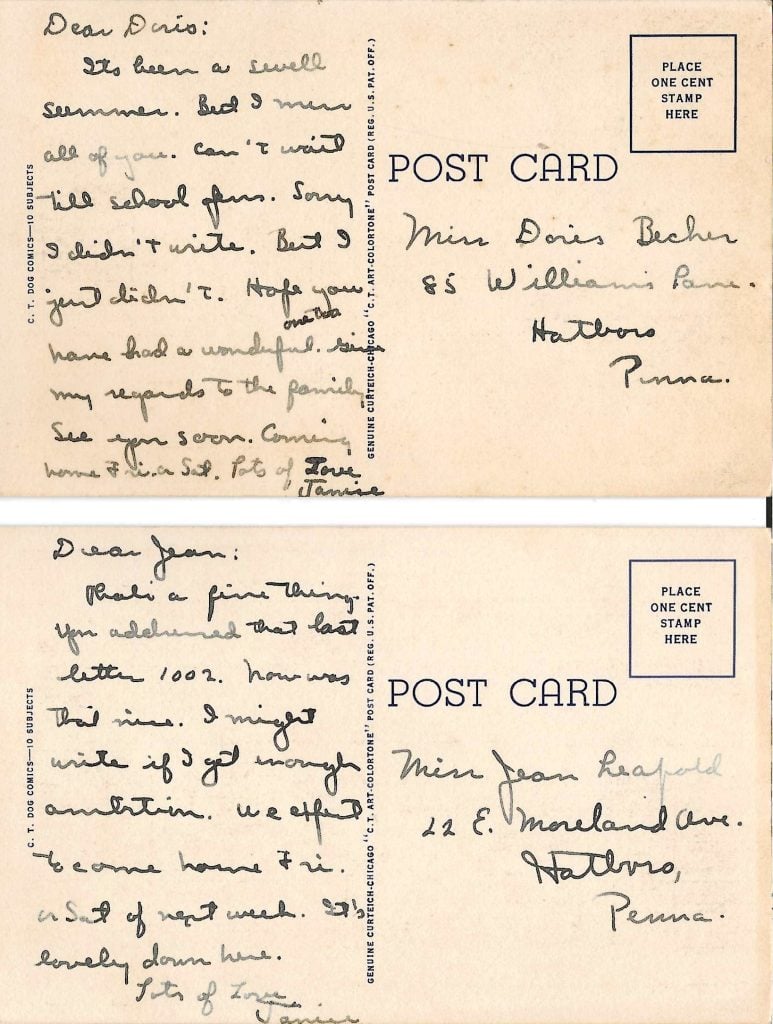 Dear Doris:
Its been a swell
summer. But I miss
all of you. Can't wait
till school opens. Sorry
I didn't write. But I
just didn't. Hope you
one too
have had a wonderful. Give
my regards to the family.
See you soon. Coming
home Fri. or Sat. Lots of Love
Janice
C. T. DOG COMICS—10 SUBJECTS
GENUINE CURTEICH-CHICAGO "C. T. ART-COLORTONE" POST CARD (REG. U. S. PAT. OFF.)
PLACE
ONE CENT
STAMP
HERE
POST CARD
Miss Doris Becher
85 Williams Lane.
Hatboro
Penna.
Dear Jean:
Thats a fine thing.
You addressed that last
letter 1002. now was
that nice. I might
write if I get enough
ambition. We expect
to come home Fri.
or Sat of next week. It's
lovely down here.
Lots of Love
Janice
C. T. DOG COMICS—10 SUBJECTS
GENUINE CURTEICH-CHICAGO "C. T. ART-COLORTONE" POST CARD (REG. U. S. PAT. OFF.)
PLACE
ONE CENT
STAMP
HERE
POST CARD
Miss Jean Leapold
22 E. Moreland Ave.
Hatboro,
Penna.